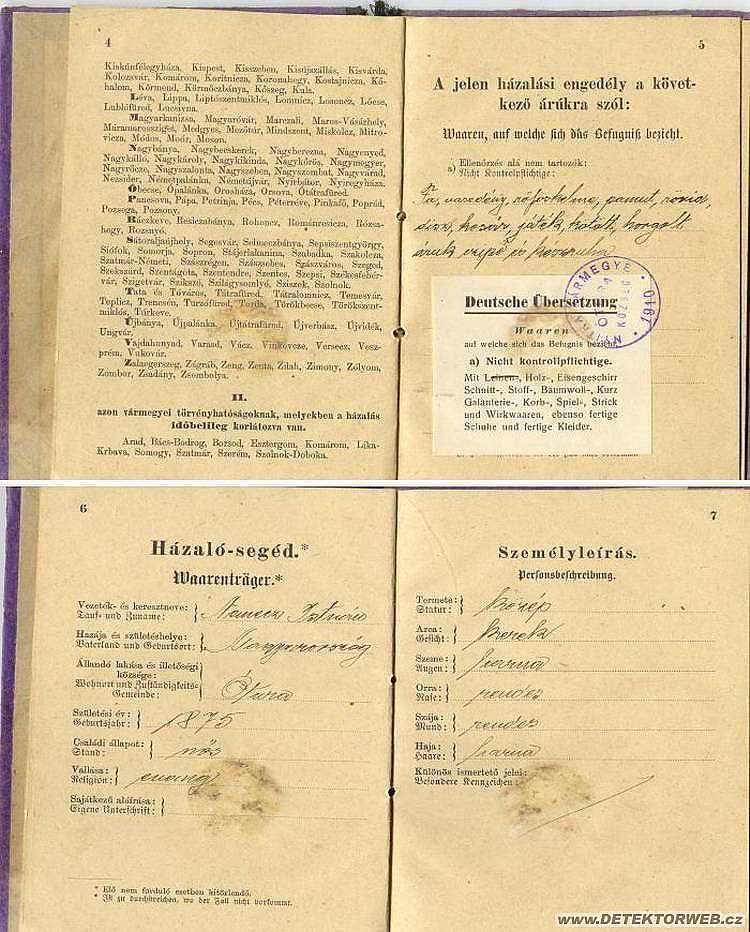 4
Kiskúnfélegyháza, Kispest, Kisszeben, Kisújszállás, Kisvárda,
Kolozsvár, Komárom, Koritnicza, Koromahegy, Kostajnicza, Kő-
halom, Körmend, Kürmöczbánya, Kőszeg, Kula.
Léva, Lippa, Liptószentmiklós, Lomnicz, Losoncz, Lőcse,
Lublófüred, Lucsivna.
Magyarkanizsa, Magyaróvár, Marczali, Maros-Vásárhely,
Máramarossziget, Medgyes, Mezőtúr, Mindszent, Miskolcz, Mitro-
vicza, Módos, Moór, Moson.
Nagybánya, Nagybecskerek, Nagyberezna, Nagyenyed,
Nagykálló, Nagykároly, Nagykikinda, Nagykőrös, Nagymegyer,
Nagyrőcze, Nagyszalonta, Nagyszeben, Nagyszombat, Nagyvárad,
Nezsider, Németpalánka, Németújvár, Nyirbátor, Nyiregyháza.
Óbecse, Ópalánka, Orosháza, Orsova, Ótátrafüred.
Pancsova, Pápa, Petrinja, Pécs, Péterréve, Pinkafő, Poprád,
Pozsega, Pozsony.
Ráczkeve, Resiczabánya, Rohoncz, Románresicza, Rózsa-
hegy, Rozsnyó.
Sátoraljaujhely, Segesvár, Selmeczbánya, Sepsiszentgyörgy,
Siófok, Somorja, Sopron, Stájerlakanina, Szabadka, Szakolcza,
Szatmár-Németi, Szászrégen, Szászsebes, Szászváros, Szeged,
Szekszárd, Szentágota, Szentendre, Szentes, Szepsi, Székesfehér-
vár, Szigetvár, Szikszó, Szilágysomlyó, Sziszek, Szolnok.
Tata és Tóváros, Tátrafüred, Tátralomnicz, Temesvár,
Teplicz, Trencsén, Turzófüred, Torda, Törökbecse, Törökszent-
miklós, Túrkeve.
Újbánya, Újpalánka, Újtátrafüred, Újverbász, Újvidék,
Ungvár.
Vajdahunyad, Varasd, Vácz, Vinkovcze, Versecz, Vesz-
prém, Vukovár.
Zalaegerszeg, Zágráb, Zeng, Zenta, Zilah, Zimony, Zólyom,
Zombor, Zsdány, Zsombolya.
II.
azon vármegyei törvényhatóságoknak, melyekben a házalás
időbelileg korlátozva van.
Arad, Bács-Bodrog, Borsod, Esztergom, Komárom, Lika-
Krbava, Somogy, Szatmár, Szerém, Szolnok-Doboka.
5
A jelen házalási engedély a követ-
kező árúkra szól:
Waaren, auf welche sich das Befugniß bezieht.
a) Ellenőrzés alá nem tartozók:
Nicht Kontrolpflichtige:
Fa, vasedény, rőfös kelme, pamut, rövid,
disz, kosár, játék, kötött, horgolt
áruk cipő és készruha
VÁRMEGYE
NYITRA
1910
Deutsche Übersetzung
Waaren
auf welche sich das Befugniß bezieht.
a) Nicht kontrollpflichtige.
Mit Leinen-, Holz-, Eisengeschirr
Schnitt-, Stoff-, Baumwoll-, Kurz
Galänterie-, Korb-, Spiel-, Strick
und Wirkwaaren, ebenso fertige
Schuhe und fertige Kleider.
6
Házaló-segéd.*
Waarenträger.*
Vezeték- és keresztneve:
Tauf- und Zuname:
Hazája és születéshelye: Magyarország
Vaterland und Geburtsort:
Állandó lakása és illetőségi
községe:
Wohnort und Zuständigkeits-
Gemeinde:
Születési év: 1875
Geburtsjahr:
Családi állapot: nős
Stand:
Vallása: evang
Religion:
Sajátkezű aláírása:
Eigene Unterschrift:
* Elő nem forduló esetben kitörlendő.
* Ist zu durchstreichen, wo der Fall nicht vorkommt.
7
Személyleírás.
Personsbeschreibung.
Termete: közép
Statur:
Arca: kerek
Gesicht:
Szeme: barna
Augen:
Orra: rendes
Nase:
Szája: rendes
Mund:
Haja: barna
Haare:
Különös ismertető jelei:
Besondere Kennzeichen:
www.DETEKTORWEB.cz